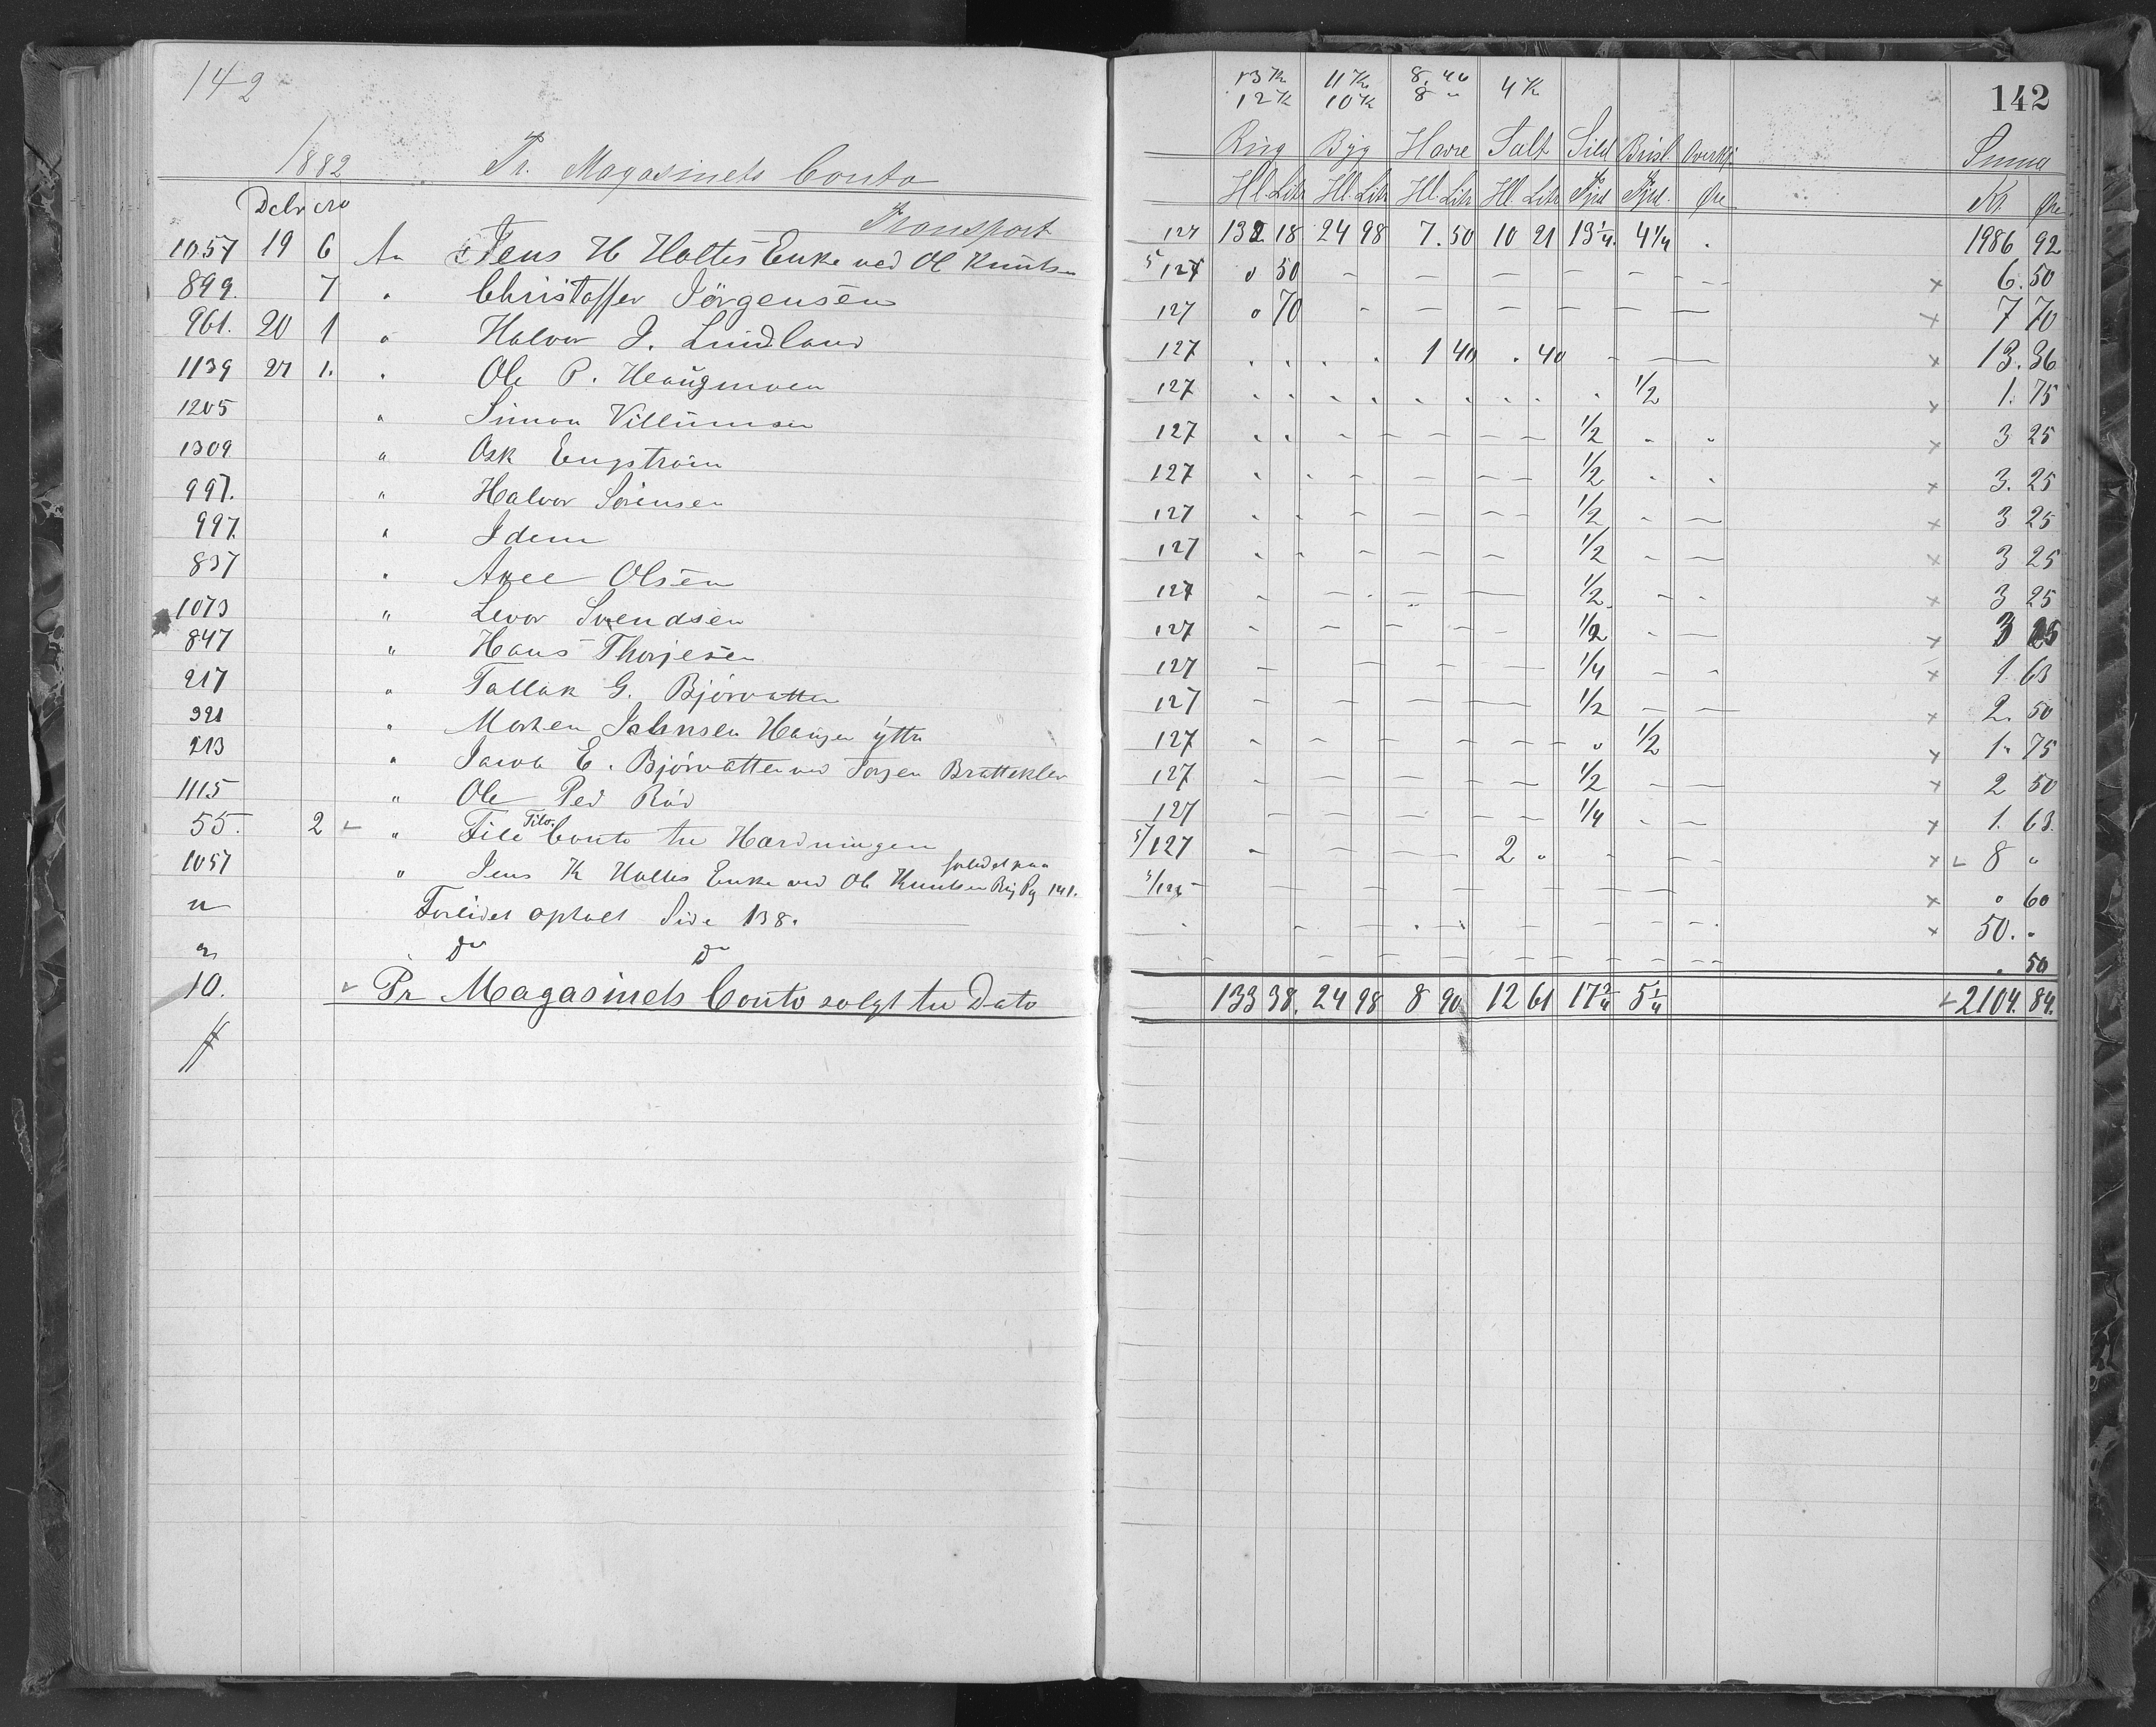 142
1882 Pr. Magasinets Conto
Debr cro
Transport
1057 19 6 An Jens H Holtes Enke ved Ol Knutsen
899. 7 " Christoffer Jörgensen
961. 20 1 " Halvor J. Lindland
1139 27 1. " Ole P. Heaugmoen
1205 " Simon Villumsen
1309 " Osk Engström
997. " Halvor Sörensen
997. " Idem
837 " Axel Olsen
1073 " Levor Svendsen
847 " Hans Thorjesen
217 " Tallak G. Björvatten
321 " Morten Johnsen Haugen yttre
213 " Jacob E. Björvatten ved Torjen Bratteklev
1115 " Ole Ped Röd
55. 2 " File Conto til Hardningen
1057 " Jens K Holtes Enke ved Ol Knutsen Rüg Pg 141.
" Forlidet optalt Side 138.
" do do
10. Pr Magasinets Conto solgt til Dato
13 Kr 11 Kr 8.40 4 Kr
12 K 10 K 8 "
142
Rüg Byg Havre Salt Sild Brisl. Overkj Summa
Hl. Litr Hl. Litr Hl. Litr Hl. Litr Fjrd Fjrd. Øre Kr Øre
127 132 18 24 98 7.50 10 21 13 1/4 4 1/4 . 1986 92
5 127 0 50 – – – – – – – × 6.50
127 0 70 – – – – – – × 7 70
127 . . . . 1 40 . 40 – – × 13.36
127 . . . . . . . . . 1/2 × 1. 75
127 . . – – – – – 1/2 . . × 3 25
127 . . – – – – 1/2 . . × 3. 25
127 . . – – – – 1/2 – – × 3 25
127 . . – – – 1/2 – – × 3 25
127 – – . – – 1/2 – . × 3 25
127 – – – – – 1/2 – – × 3 25
127 – – – – 1/4 – . × 1. 63
127 – – – – – 1/2 – – × 2. 50
127 – – – – – – . 1/2 × 1. 75
127 – – – – – – 1/2 – – × 2 50
127 – – – – – 1/4 – – × 1. 63.
5/127 – – – – 2 " – – – × 8 "
5/126 – – – – – – – × " 60
. – . . – – – . × 50. "
– – – – – – – – . 50
133 38. 24 98 8 90 12 61 17 3/4 5 1/4 2104. 84.